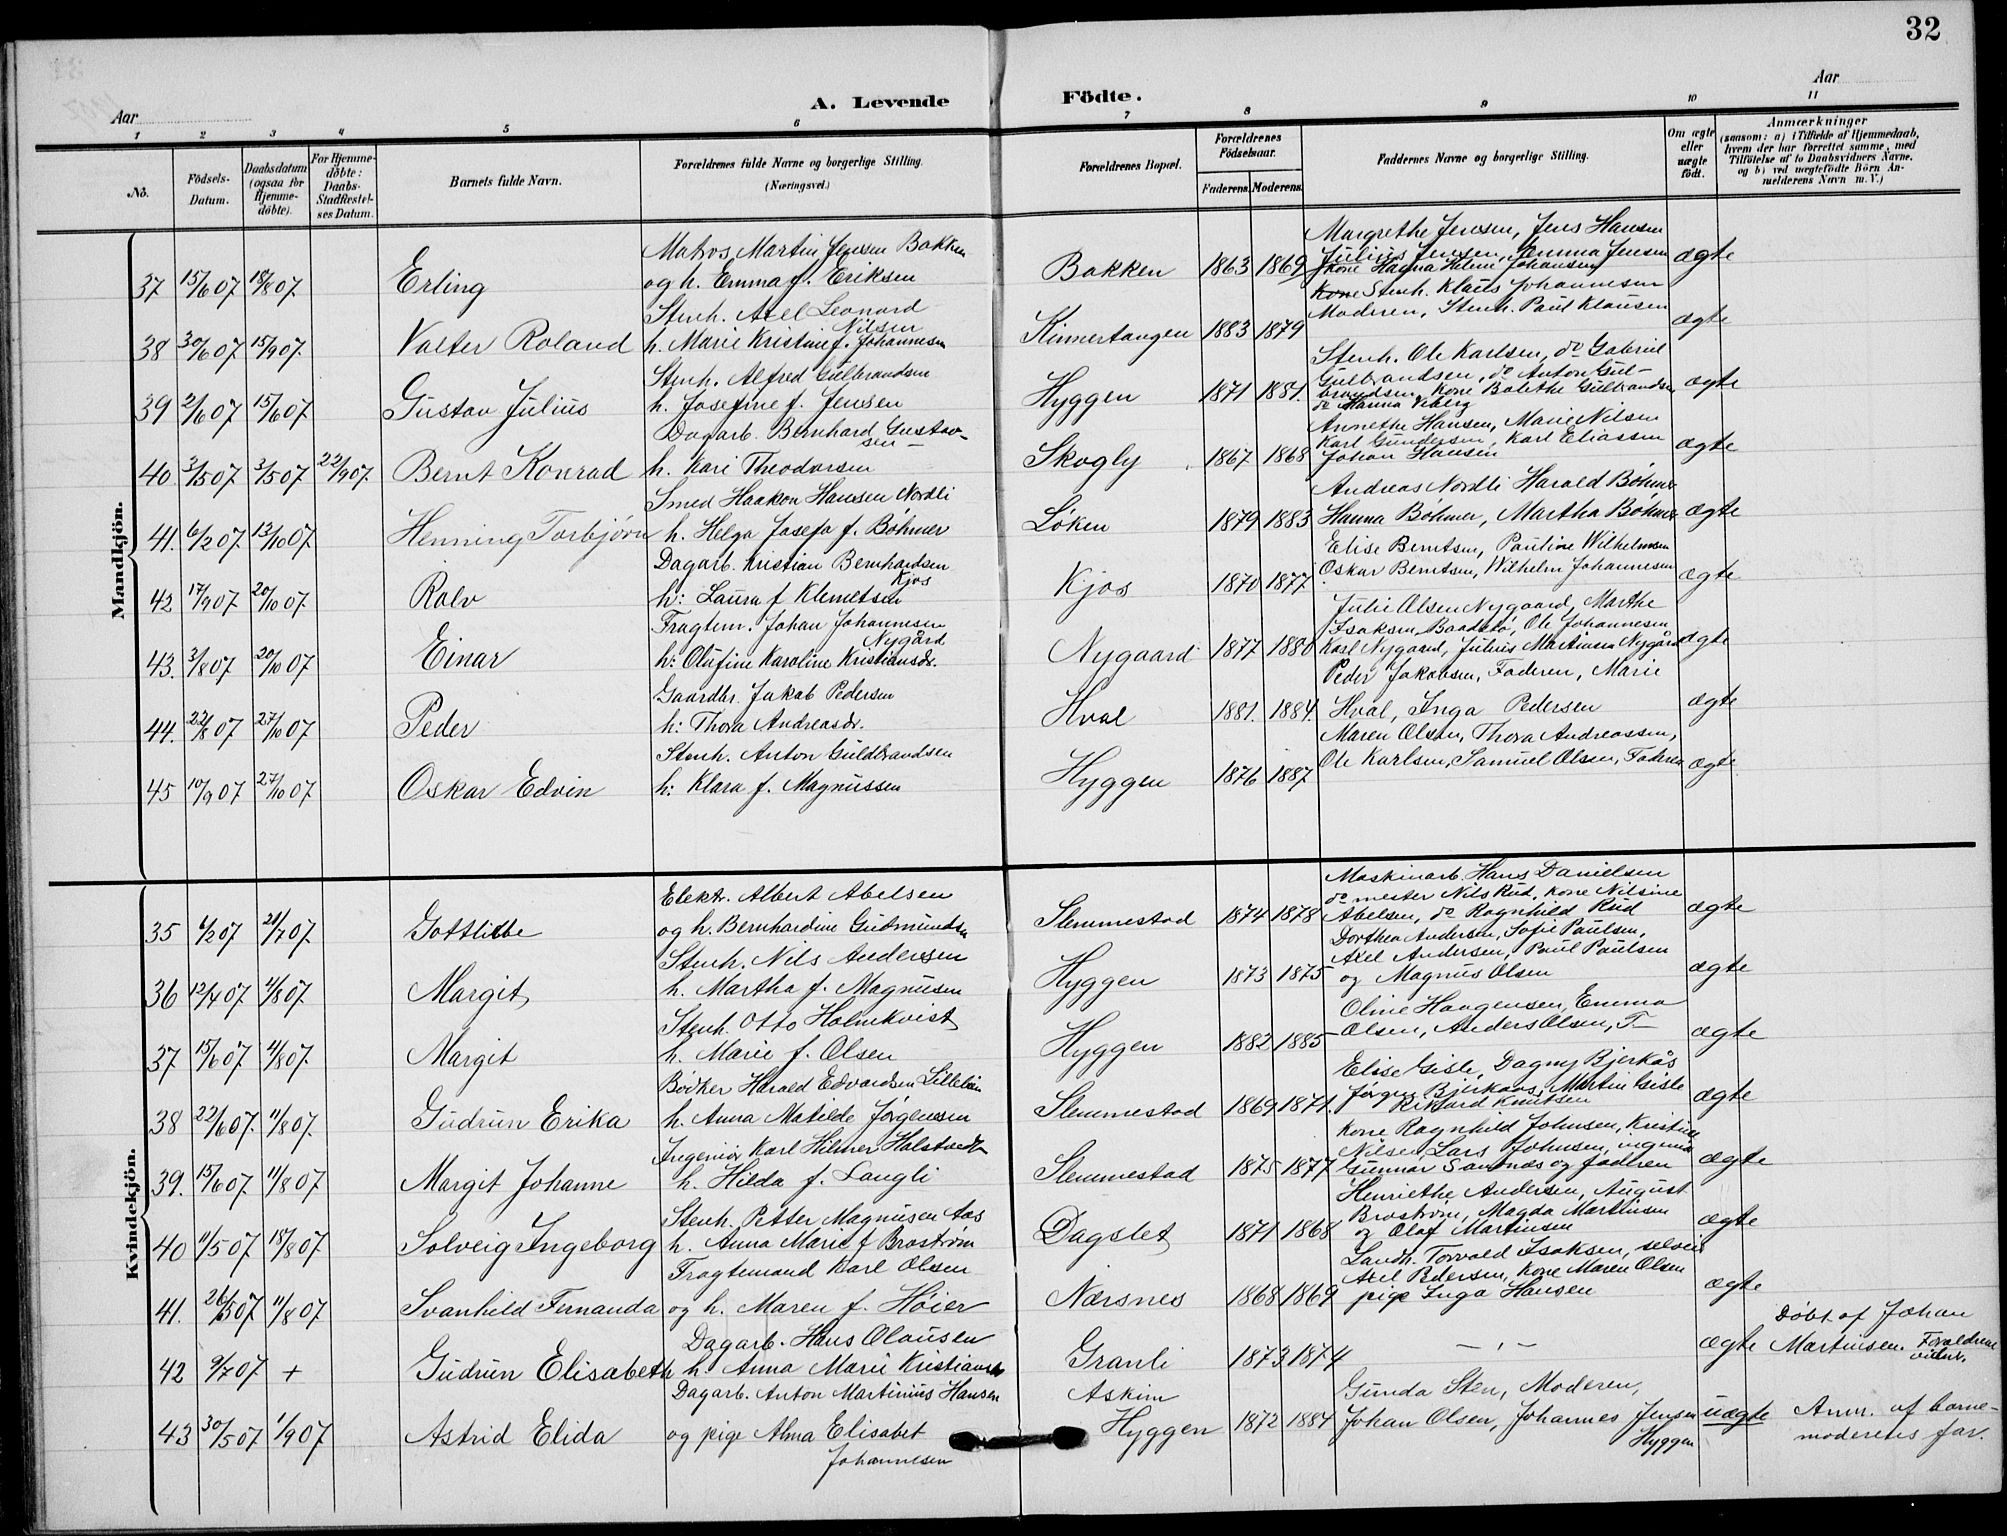 32
Aar
A. Levende Födte.
Aar
1 2 3 4 5 6 7 8 9 10 11
No.
Födsels-Datum.
Daabsdatum (ogsaa for Hjemme-döbte).
For Hjemme-döbte: Daabs-Stadfæstel-ses Datum.
Barnets fulde Navn.
Forældrenes fulde Navne og borgerlige Stilling. (Næringsvei.)
Forældrenes Bopæl.
Forældrenes Födselsaar.
Faderens. Moderens.
Faddernes Navne og borgerlige Stilling.
Om ægte eller uægte födt.
Anmærkninger
(saasom: a) i Tilfælde af Hjemmedaab, hvem der har forrettet samme, med Tilföielse af to Daabsvidners Navne, og b) ved uægtefödte Börn An-melderens Navn m. V.)
Mandkjön.
37 15/6 07 18/8 07. Erling
Matros Martin Jenssen Bakken
og h. Emma f. Eriksen
Bakken 1863 1869
Margrethe Jensen, Jens Hansen
Julius Jensen, Emma Jensen
ægte
38 30/6 07 15/9 07. Valter Roland
Stenh. Axel Leonard Nilsen
h. Marie Kristine f. Johannesen
Kinnertangen 1883 1879
Kone Hagna Helene Johansen
Kone Stenh. Klaus Johannesen
Moderen, Stenh. Paul Klausen
ægte
39 2/6 07 15/6 07. Gustav Julius
Stenh. Alfred Gulbrandsen
h. Josefine f. Jensen
Hyggen 1871 1881.
Stenh. Ole Karlsen, do Gabriel
Gulbrandsen, do Anton Gul-
brandsen, Kone Bolethe Gulbrandsen
do Hanna Viberg
ægte
40 3/5 07 3/5 07 22/9 07. Bernt Konrad
Dagarb. Bernhard Gustav-
sen
h. Kari Theodorsen
Skogly 1867 1868
Annethe Hansen, Marie Nilsen
Karl Gundersen, Karl Eliassen
Johan Hansen
ægte
41. 6/2 07 13/10 07. Henning Torbjörn
Smed Haakon Hansen Nordli
h. Helga Josefa f. Böhmer
Löken 1879 1883
Andreas Nordli Harald Böhmer
Hanna Böhmer, Martha Böhmer
ægte
42 17/9 07 20/10 07. Rolv
Dagarb. Kristian Bernhardsen
Kjos
h: Laura f Klemetsen
Kjos 1870 1877
Elise Berntsen, Pauline Wilhelmsen
Oskar Berntsen, Wilhelm Johannesen
ægte
43. 3/8 07 20/10 07 Einar
Fragtem. Johan Johannesen
Nygård
h: Olufine Karoline Kristiansdr.
Nygaard 1877 1880
Julie Olsen Nygaard, Marthe
Isaksen, Baadstö, Ole Johannesen
Karl Nygaard, Julius Martinsen Nygård
ægte
44. 22/8 07 27/10 07 Peder
Gaardbr. Jakob Pedersen
h: Thora Andreasdr.
Hval 1881. 1884.
Peder Jakobsen, Faderen, Marie
Hval, Inga Pedersen
ægte
45 10/9 07 27/10 07 Oskar Edvin
Stenh. Anton Guldbrandsen
h: Klara f. Magnussen
Hyggen 1876 1887
Maren Olsen, Thora Andreassen,
Ole Karlsen, Samuel Olsen, Faderen
ægte
Kvindekjön.
35 6/2 07 21/7 07. Gottlibe
Elektr. Albert Abelsen
og h. Bernhardine Gudmundsen
Slemmestad 1874 1878
Maskinarb. Hans Danielsen
do mester Nils Rud, Kone Nilsine
Abelsen, do Ragnhild Rud
ægte
36 12/4 07 11/8 07. Margit
Stenh. Nils Andersen
h. Martha f. Magnusen
Hyggen 1873 1875
Dorthea Andersen, Sofie Paulsen,
Axel Andersen, Paul Paulsen
og Magnus Olsen
ægte
37 15/6 07 11/8 07. Margit
Stenh. Otto Holmkvist
h. Marie f. Olsen
Hyggen 1882 1885
Oline Haagensen, Emma
Olsen, Anders Olsen, F-
ægte
38 22/6 07. 11/8 07. Gudrun Erika
Bödker Harald Edvardsen
h. Anna Matilde Jörgensen
Slemmestad 1869 1871.
Elise Gisle, Dagny Bjerkås
Jörgen Bjerkaas, Martin Gisle
Rikard Knutsen
ægte
39. 15/6 07. 11/8 07 Margit Johanne
Ingeniör Karl Hilmer Halstvedt
h. Hilda f. Langli
Slemmestad 1875 1877
Kone Ragnhild Johnsen, Kristine
Nilsen, Lars Johnsen, ingeniör
Gunnar Sandnæs og faderen
ægte
40 11/5 07 18/8 07 Solveig Ingeborg
Stenh. Petter Magnusen Aas
h. Anna Marie f Broström
Dagslet 1871 1868
Henriethe Andersen, August
Broström, Magda Martinsen
og Olaf Martinsen
ægte
41. 26/5 07 11/8 07 Svanhild Fernanda
Fragtemand Karl Olsen
og h. Maren f. Höier
Nærsnes 1868 1869
Landh. Torvald Isaksen, selveier
Axel Pedersen, Kone Maren Olsen
pige Inga Hansen
ægte
42 9/7 07 + Gudrun Elisabeth
Dagarb. Hans Olausen
h Anna Marie Kristiansen
Granli 1873 1874
— " —
ægte
Döbt af Johan
Martinsen. Forældrene
vidner.
43 30/5 07 1/9 07 Astrid Elida
Dagarb. Anton Martinius Hansen
og pige Alma Elisabet
Johannesen
Askim
Hyggen 1872 1884
Gunda Sten, Moderen,
Johan Olsen, Johannes Jensen
Hyggen
uægte
Anm. af barne-
moderens far.